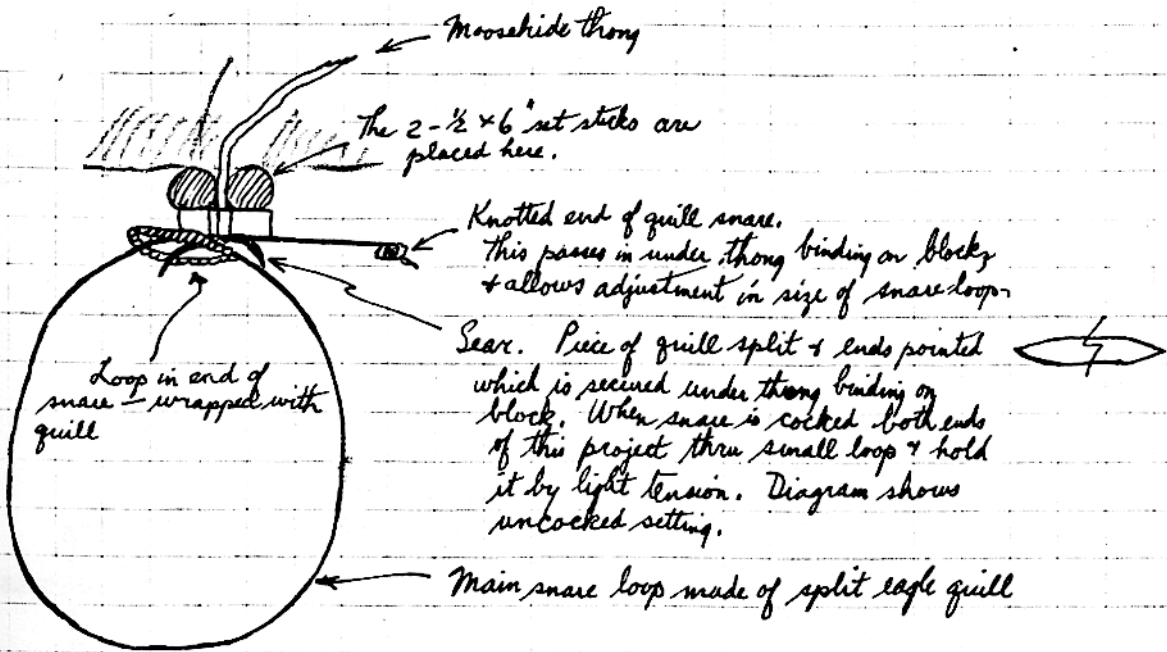 Moosehide thong
The 2-½ x 6" set sticks are
placed here.
Knotted end of quill snare.
This passes in under thong binding on block
& allows adjustment in size of snare loop-
Sear. Piece of quill split & ends pointed
which is secured under thong binding on
block. When snare is cocked both ends
of this project thru small loop & hold
it by light tension. Diagram shows
uncocked setting.
Loop in end of
snare - wrapped with
quill
Main snare loop made of split eagle quill